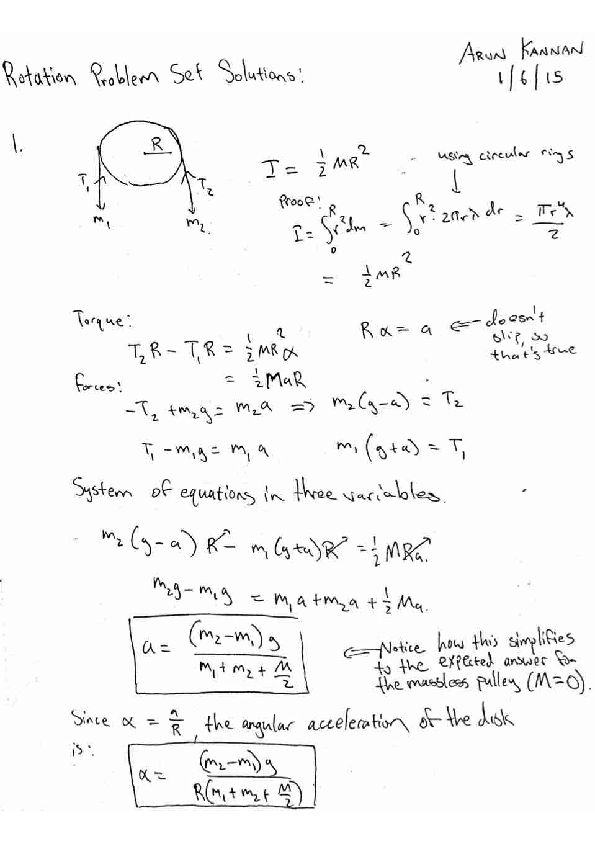 ARUN KANNAN
Rotation Problem Set Solutions:
1/6/15
1.
R
T₁
T₂
m₁
m₂
I = ½ MR²
using circular rings
Proof:
I = ∫₀ᴿ r² dm = ∫₀ᴿ r² · 2πrλ dr = πr⁴λ/2
= ½ MR²
Torque:
T₂R − T₁R = ½ MR²α
Rα = a ⇐ doesn't slip, so that's true
= ½ MaR
Forces:
−T₂ + m₂g = m₂a ⇒ m₂(g−a) = T₂
T₁ − m₁g = m₁a
m₁(g+a) = T₁
System of equations in three variables.
m₂(g−a)R − m₁(g+a)R = ½ MRa.
m₂g − m₁g = m₁a + m₂a + ½ Ma.
a = (m₂−m₁)g / (m₁ + m₂ + M/2)
⇐ Notice how this simplifies
to the expected answer for
the massless pulley (M=0).
Since α = a/R, the angular acceleration of the disk
is:
α = (m₂−m₁)g / R(m₁ + m₂ + M/2)